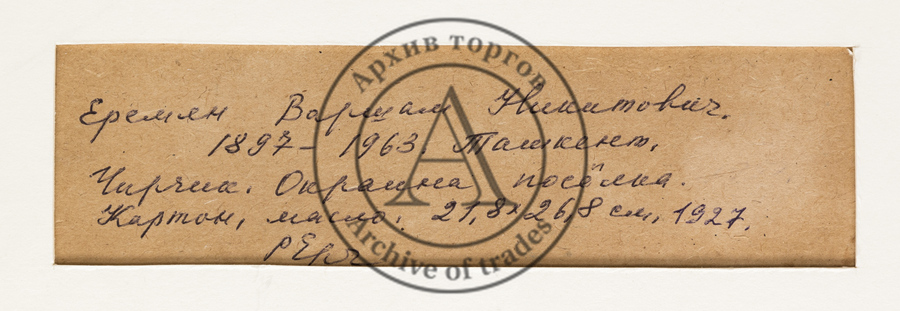 Архив торгов
Еремян Варшам Никитович.
1897 – 1963. Ташкент.
Чирчик. Окраина посёлка.
Картон, масло. 21,8 x 26,8 см, 1927.
Archive of trades